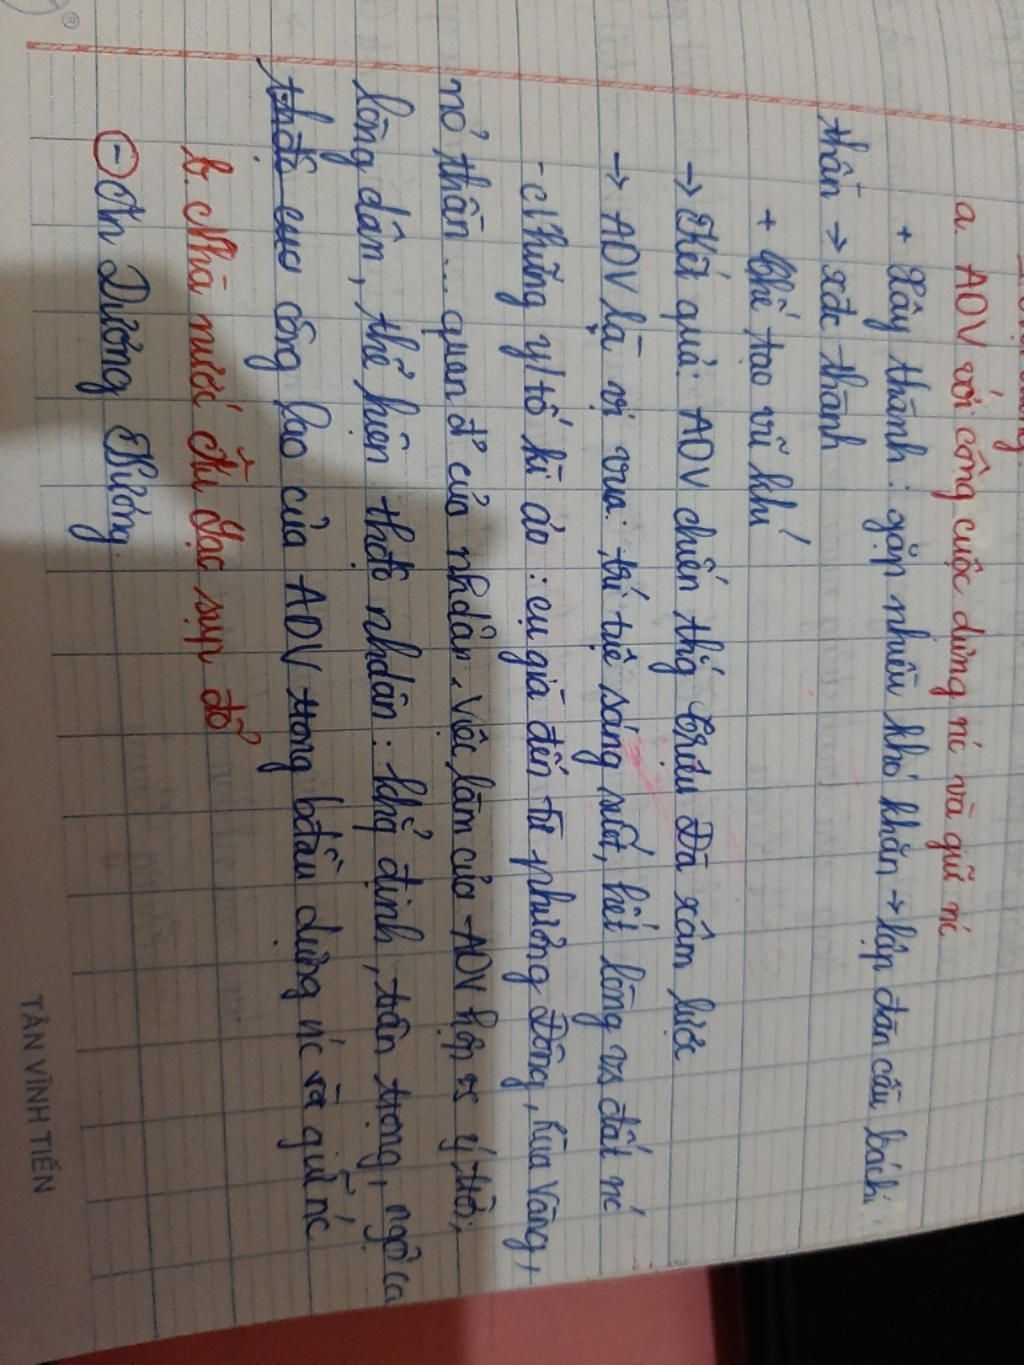 a. ADV với công cuộc dựng nc và giữ nc
+ Xây thành: gặp nhiều khó khăn → lập đàn cầu bách
thần → xđc thành
+ Chế tạo vũ khí
→ Kết quả: ADV chiến thắg Triệu Đà xâm lược
→ ADV là vị vua: trí tuệ sáng suốt, hết lòng vs đất nc
- Những y/tố kì ảo: cụ già đến từ phương Đông, Rùa Vàng,
nỏ thần... quan đ' của nhdân. Việc làm của ADV hợp vs ý trời,
lòng dân, thể hiện thđộ nhdân: khg định, trân trọng, ngợi ca
thđộ cua công lao của ADV trong bđầu dựng nc và giữ nc
b. Nhà nước Âu Lạc sụp đổ
- An Dương Vương
TÂN VĨNH TIẾN